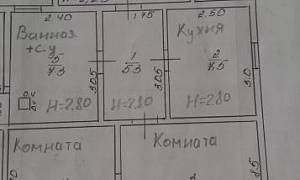 2.40 1.75 2.50
Ванная
+с.у
5
7.3
3.05
H=2.80
1
5.3
3.05
H=2.80
Кухня
2
7.5
3.0
H=2.80
Комната
Комната